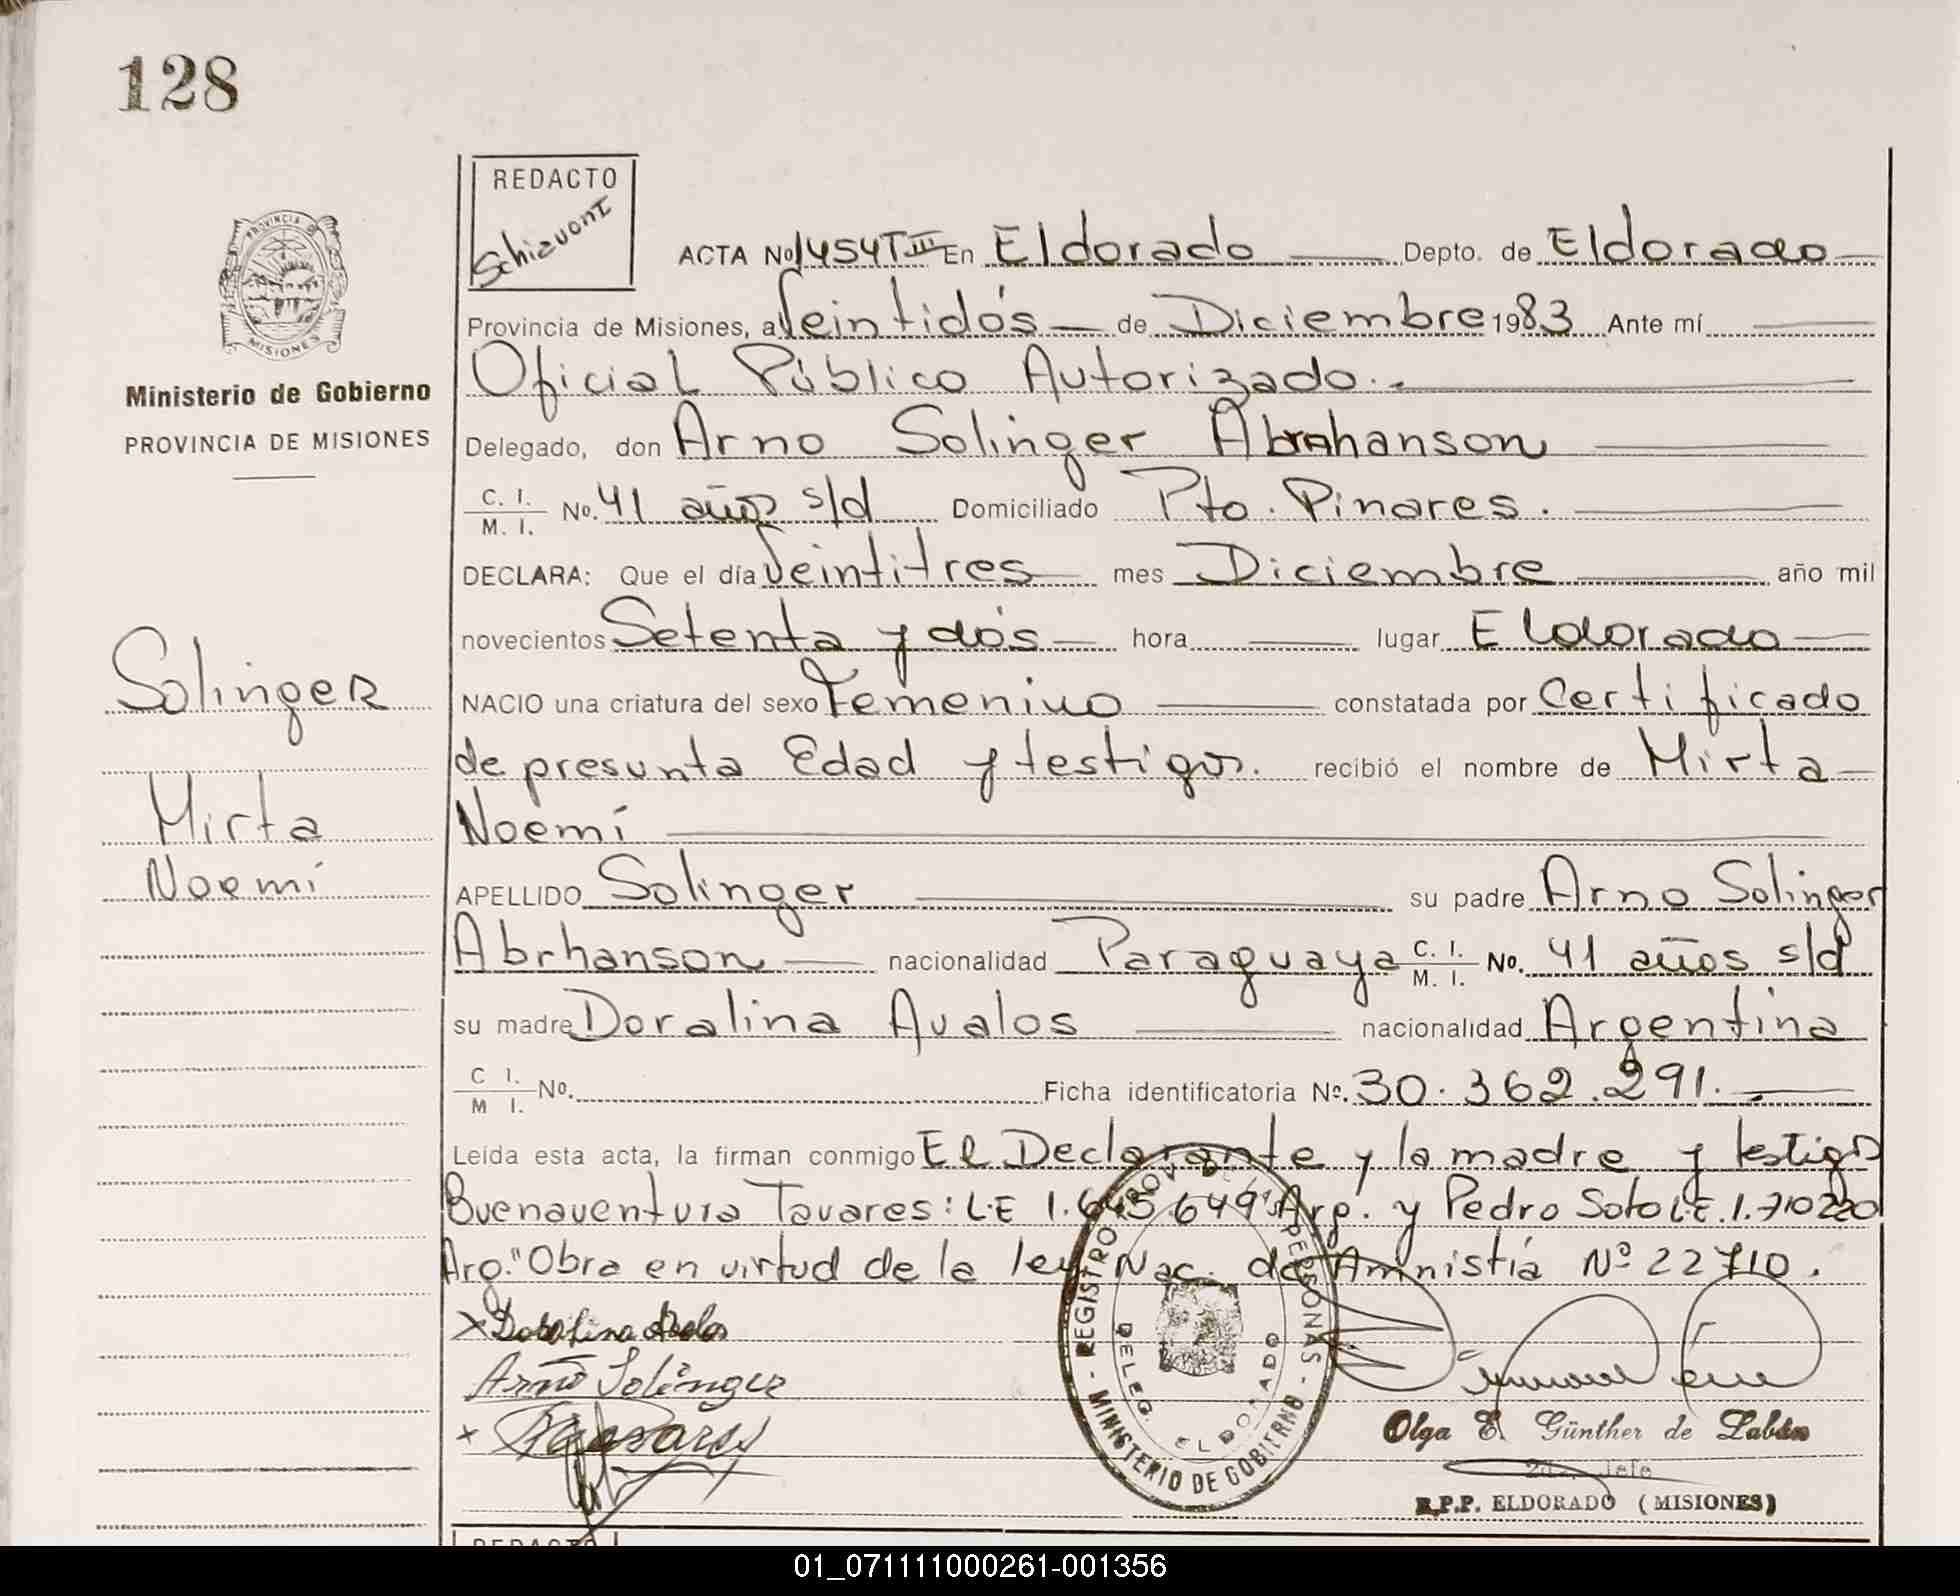 128
REDACTO
Schiavoni
PROVINCIA DE
MISIONES
Ministerio de Gobierno
PROVINCIA DE MISIONES
ACTA No 1454 T III En Eldorado Depto. de Eldorado
Provincia de Misiones, a Veintidós de Diciembre 1983 Ante mí
Oficial Público Autorizado.
Delegado, don Arno Solinger Abrahanson
C. I. / M. I. No. 41 años s/d Domiciliado Pto. Pinares.
DECLARA: Que el día Veintitres mes Diciembre año mil
novecientos Setenta y dós hora lugar Eldorado
NACIO una criatura del sexo Femenino constatada por Certificado
de presunta Edad y testigos. recibió el nombre de Mirta
Noemí
APELLIDO Solinger su padre Arno Solinger
Abrhanson nacionalidad Paraguaya C. I. / M. I. No. 41 años s/d
su madre Doralina Avalos nacionalidad Argentina
C I. / M I. No. Ficha identificatoria No. 30.362.291.
Leída esta acta, la firman conmigo El Declarante y la madre y testigos
Buenaventura Tavares: L.E 1.645.649 Arg. y Pedro Soto L.E. 1.710220
Arg." Obra en virtud de la ley Nac. de Amnistiá Nº 22710.
Solinger
Mirta
Noemí
x Doralina Avalos
Arno Solinger
x
REGISTRO PROV. DE LAS PERSONAS - MINISTERIO DE GOBIERNO -
DELEG. ELDORADO
Olga E. Günther de Labán
2da. Jefe
R.P.P. ELDORADO (MISIONES)
REDACTO
01_071111000261-001356